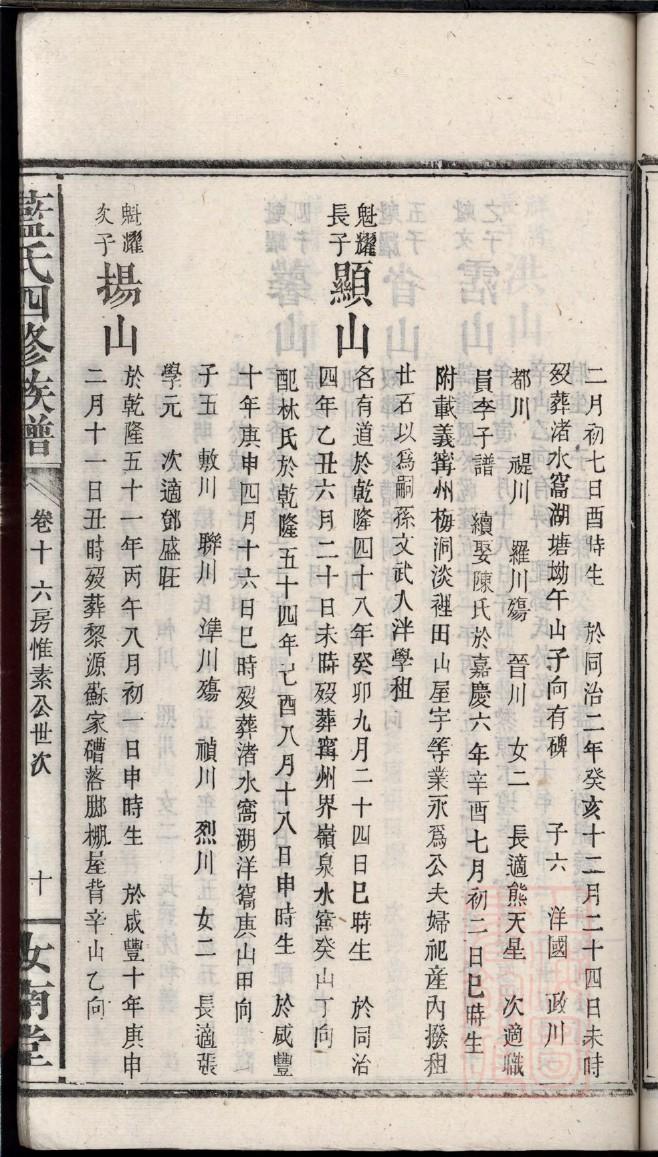 二月初七日酉時生 於同治二年癸亥十二月二十四日未時
歿葬渚水窩湖塘坳午山子向有碑 子六 洋國 政川
都川 禔川 羅川殤 晉川 女二 長適熊天星 次適職
員李子譜 續娶陳氏於嘉慶六年辛酉七月初二日巳時生
附載義甯州梅洞淡裡田山屋宇等業永爲公夫婦祀産內撥租
壯石以爲嗣孫文武入泮學租
魁耀長子 顯山 名有道於乾隆四十八年癸卯九月二十四日巳時生 於同治
四年乙丑六月二十日未時歿葬甯州界嶺泉水窩癸山丁向
配林氏於乾隆五十四年己酉八月十八日申時生 於咸豐
十年庚申四月十六日巳時歿葬渚水窩湖洋窩庚山甲向
子五 敷川 聯川 準川殤 禎川 烈川 女二 長適張
學元 次適鄧盛旺
魁耀次子 揚山 於乾隆五十一年丙午八月初一日申時生 於咸豐十年庚申
二月十一日丑時歿葬黎源蘇家磱落腳棚屋背辛山乙向
藍氏四修族譜 卷十 六房惟素公世次 十 汝南堂